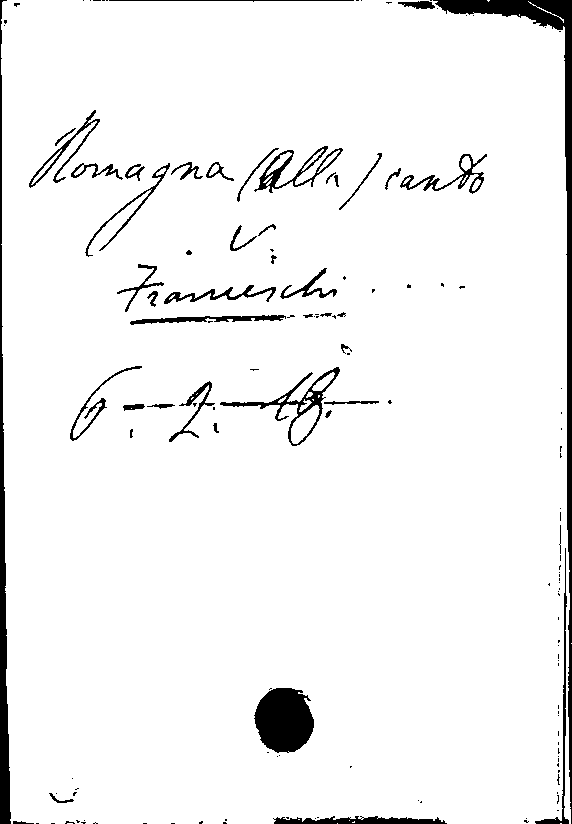 Romagna (Alla) canto
V.
Franceschi . . . .
6. - 2. - 18. -